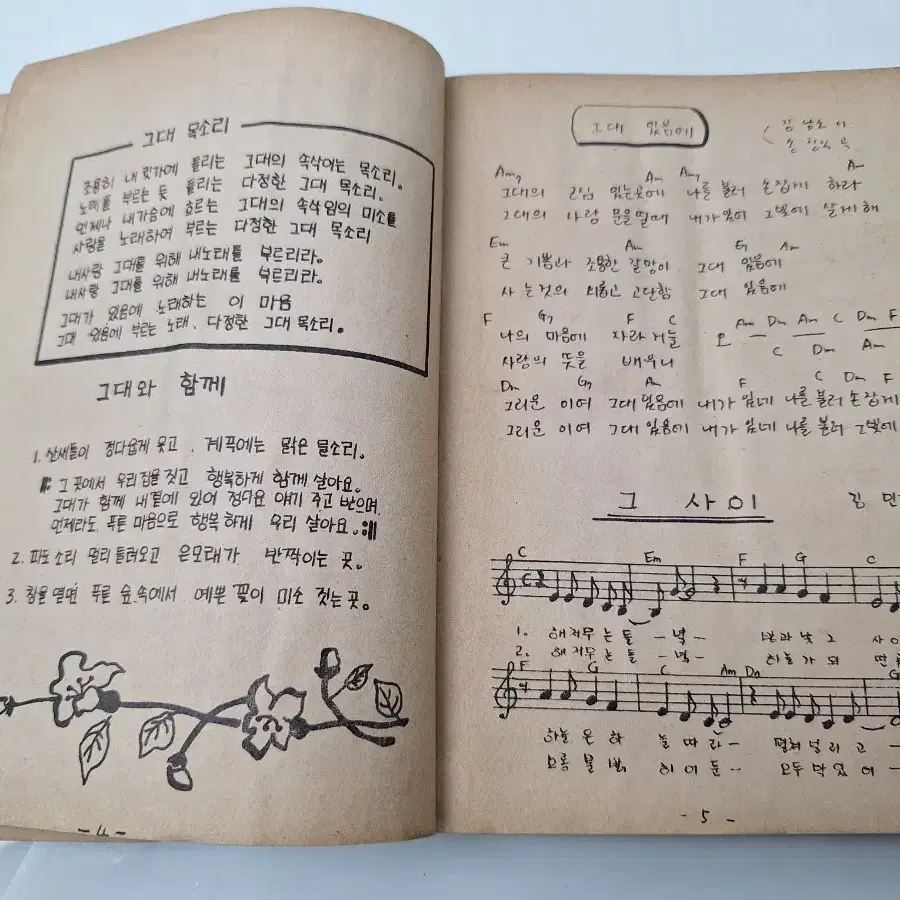 그대 목소리
조용히 내 귓가에 들리는 그대의 속삭이는 목소리.
노래를 부르는 듯 들리는 다정한 그대 목소리.
언제나 내가슴에 흐르는 그대의 속삭임의 미소를
사랑을 노래하여 부르는 다정한 그대 목소리
내사랑 그대를 위해 내노래를 부르리라.
내사랑 그대를 위해 내노래를 부르리라.
그대가 있음에 노래하는 이 마음
그대 있음에 부르는 노래. 다정한 그대 목소리.
그대와 함께
1. 산새들이 정다웁게 웃고. 계곡에는 맑은 물소리.
그 곳에서 우리집을 짓고 행복하게 함께 살아요.
그대가 함께 내곁에 있어 정다운 얘기 주고 받으며
언제라도 푸른 마음으로 행복하게 우리 살아요.
2. 파도소리 멀리 들려오고 은모래가 반짝이는 곳.
3. 창을 열면 푸른 숲속에서 예쁜 꽃이 미소 짓는 곳.
- 4 -
그대 있음에
김남조 시
손 곡
Am7 Am Am7 Am
그대의 근심 있는곳에 나를 불러 손잡게 하라
그대의 사랑 문을열때 내가있어 그빛에 살게해
Em Am E7 Am
큰 기쁨과 조용한 갈망이 그대 있음에
사는것의 외롭고 고단함 그대 있음에
F G7 F C Am Dm Am C Dm F
나의 마음에 자라거늘 오
C Dm Am
사랑의 뜻을 배우니
Dm G7 Am F C Dm F
그리운 이여 그대있음에 내가 있네 나를 불러 손잡게
그리운 이여 그대 있음에 내가 있네 나를 불러 그빛에
그 사이
김 민
C Em F G C
1. 해저무는들 - 녘 - 낮과밤그 사이
2. 해저무는들 - 녘 - 하늘가외 딴
F G C Am Dm G
하늘은하 늘따라 - 펼쳐널리고 -
오롱불빡 히어둔 - - 모두막았어 -
- 5 -